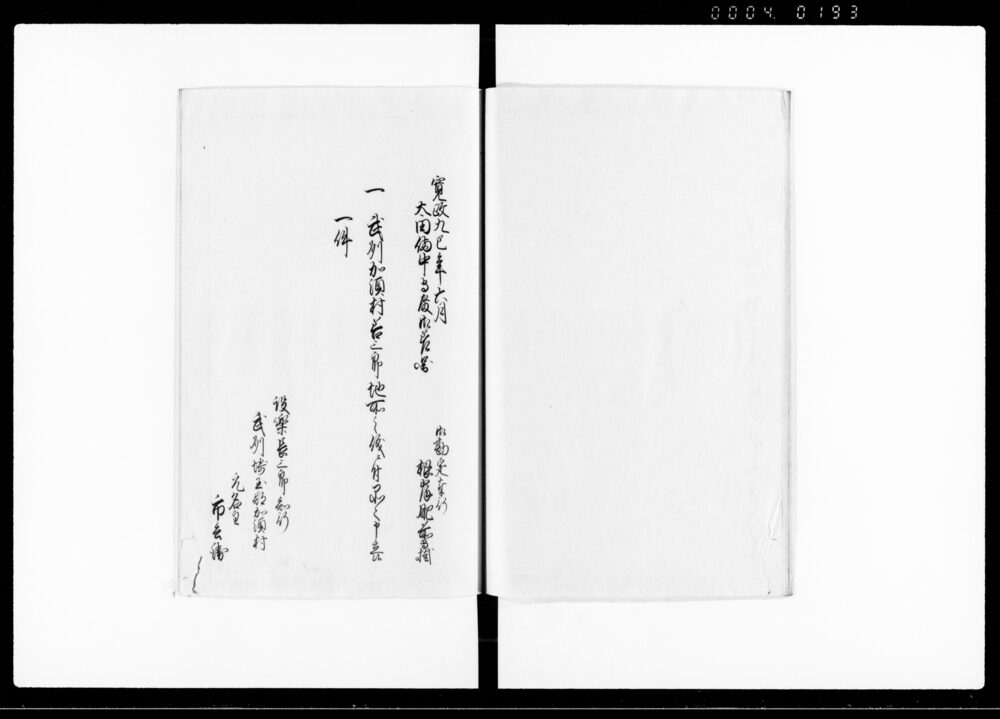 0004 0193
寛政九巳年六月
太田備中守殿御差図
御勘定奉行
根岸肥前守掛
一 武州加須村若三郎地所之儀ニ付不〻申立候
一件
設楽長三郎知行
武州埼玉郡加須村
元名主
市兵衛